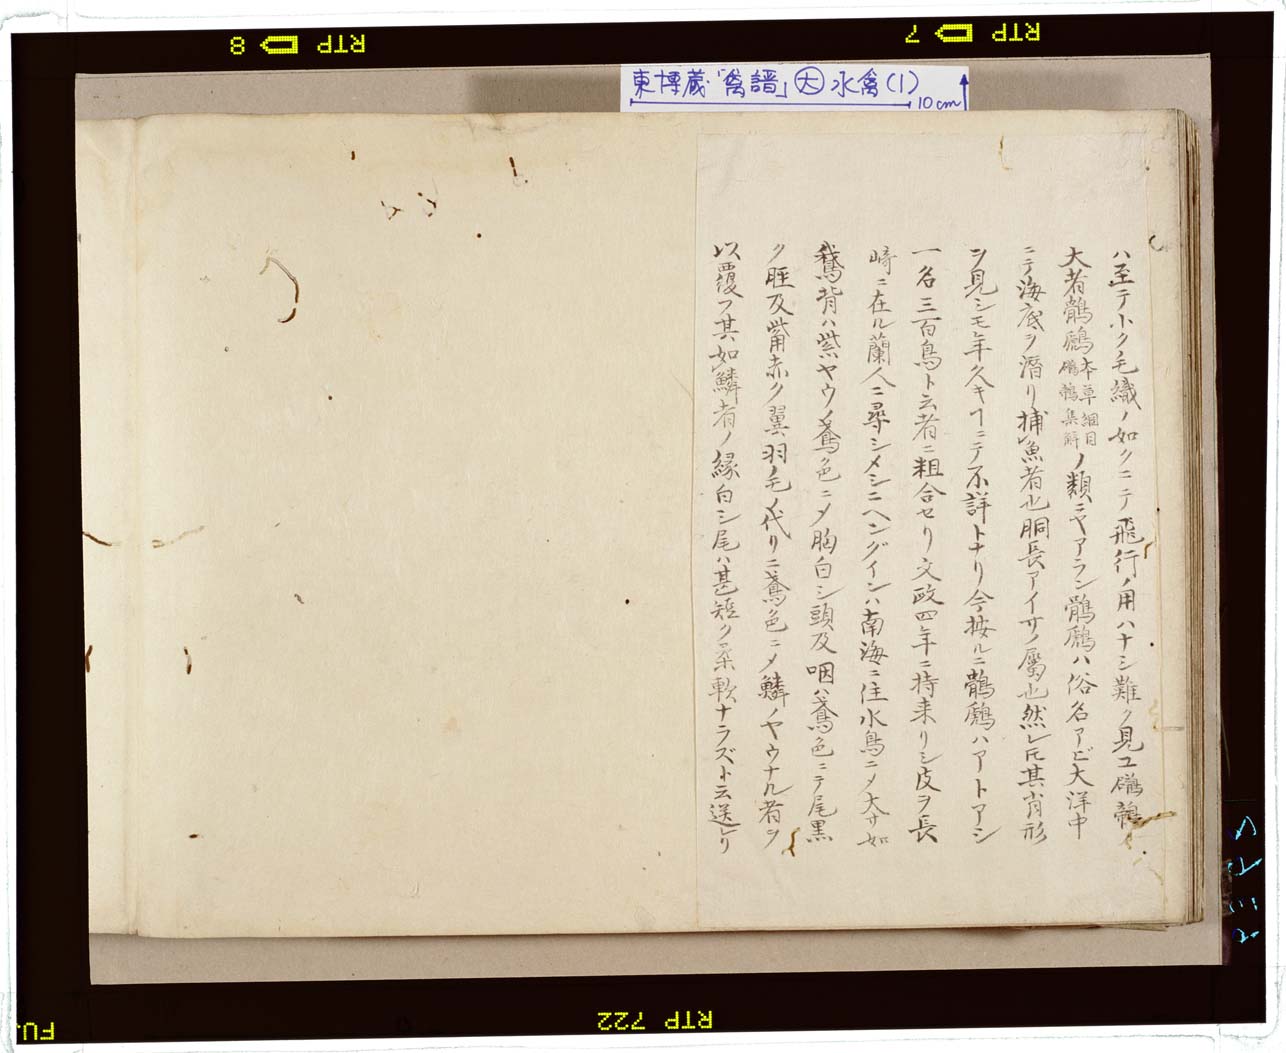 東博蔵・「禽譜」大水禽(1)
10cm
ハ至テ小ク毛織ノ如クニテ飛行ノ用ハナシ難ク見ユ鸊鷉ノ
大者鶻鷉本草綱目鸊鷉集解ノ類ニヤアラン鶻鷉ハ俗名アビ大洋中
ニテ海底ヲ潛リ捕魚者也胴長アイサノ屬也然レ𪜈其肖形
ヲ見シモ年久キヿニテ不詳トナリ今按ルニ鶻鷉ハアトアシ
一名三百鳥ト云者ニ粗合セリ文政四年ニ持来リシ皮ヲ長
崎ニ在ル蘭人ニ尋シメシニヘングイシハ南海ニ住水鳥ニメ大サ如
鵞背ハ紫ヤウノ鳶色ニメ胸白シ頭及咽ハ鳶色ニテ尾黒
ク脛及觜赤ク翼羽ノ毛ノ代リニ鳶色ニメ鱗ノヤウナル者ヲ
以覆フ其如鱗者ノ縁白シ尾ハ甚短ク柔軟ナラズト云送レリ
RTP
8
RTP
7
RTP 722
FUJ